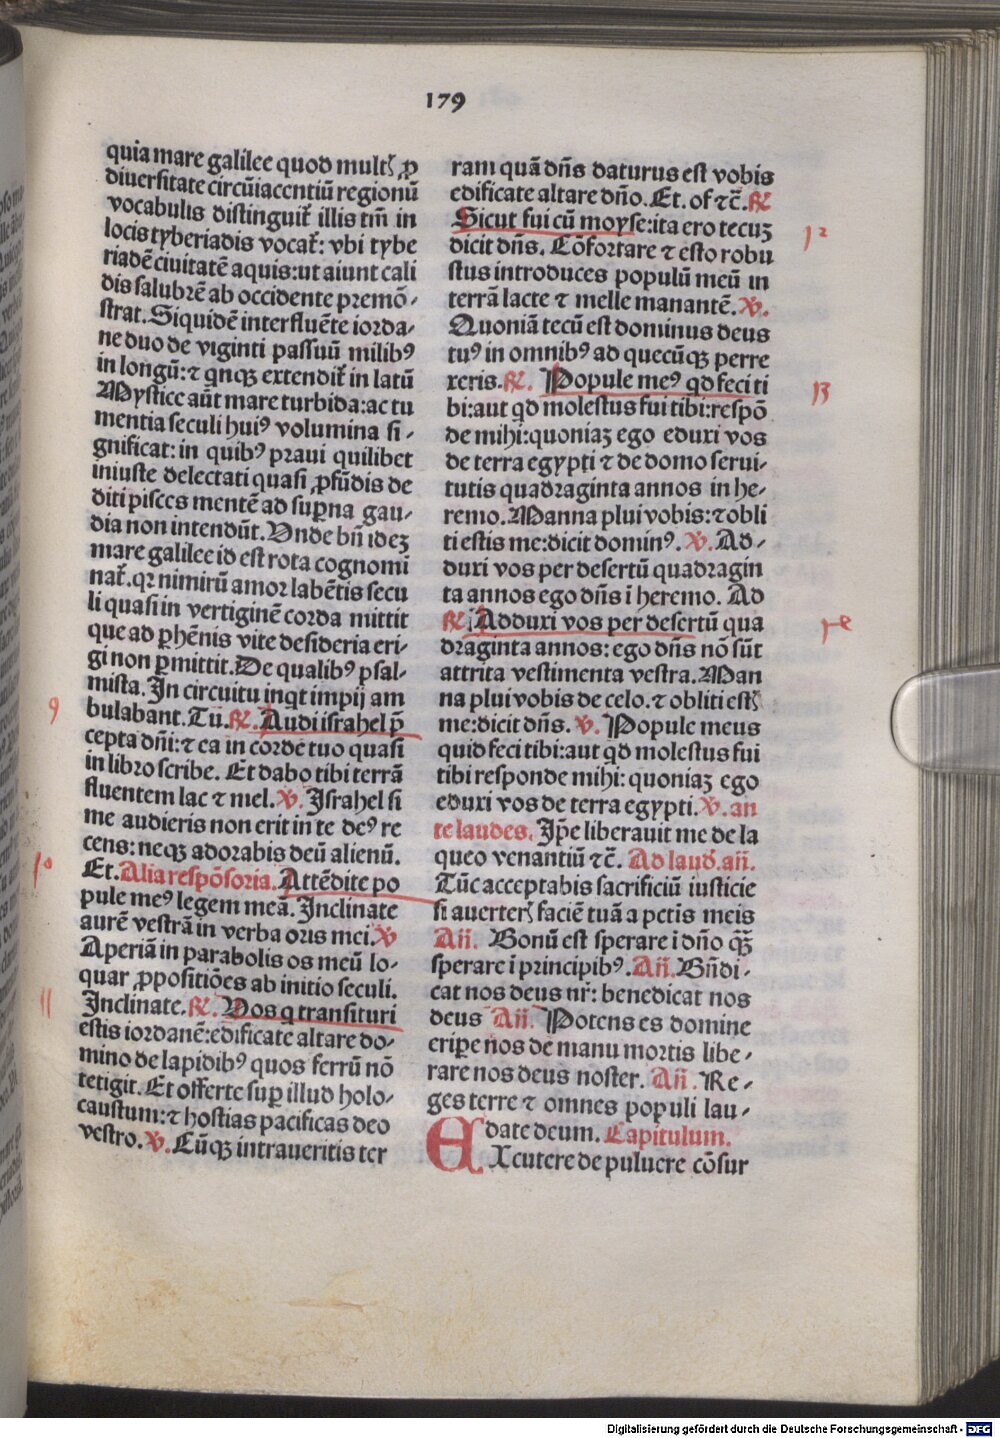 179
quia mare galilee quod multꝭ ꝓ
diuersitate circūiacentiū regionū
vocabulis distinguit᷑ illis tm̄ in
locis tyberiadis vocat᷑: vbi tybe
riadē ciuitatē aquis: ut aiunt cali
dis salubrē ab occidente premō⸗
strat. Siquidē interfluēte iorda⸗
ne duo de viginti passuū milibꝰ
in longū: ⁊ qͥnqꝫ extendit᷑ in latū
Mystice aūt mare turbida: ac tu
mentia seculi huiꝰ volumina si⸗
gnificat: in quibꝰ praui quilibet
iniuste delectati quasi ꝓfūdis de
diti pisces mentē ad suꝑna gau⸗
dia non intendūt. Vnde bn̄ idez
mare galilee id est rota cognomi
nat᷑. qꝛ nimirū amor labētis secu
li quasi in vertiginē corda mittit
que ad ꝑhēnis vite desideria eri⸗
gi non ꝑmittit. De qualibꝰ psal⸗
mista. In circuitu inqͥt impij am
bulabant. Tu. ꝶ. Audi israhel p̄
cepta dn̄i: ⁊ ea in corde tuo quasi
in libro scribe. Et dabo tibi terrā
fluentem lac ⁊ mel. ℣. Israhel si
me audieris non erit in te deꝰ re
cens: neqꝫ adorabis deū alienū.
Et. Alia respōsoria. Attēdite po
pule meꝰ legem meā. Inclinate
aurē vestrā in verba oris mei. ℣
Aperiā in parabolis os meū lo⸗
quar ꝓpositiōes ab initio seculi.
Inclinate. ꝶ. Vos qͥ transituri
estis iordanē: edificate altare do⸗
mino de lapidibꝰ quos ferrū nō
tetigit. Et offerte suꝑ illud holo⸗
caustum: ⁊ hostias pacificas deo
vestro. ℣. Cūqꝫ intraueritis ter
9
10
11
ram quā dn̄s daturus est vobis
edificate altare dn̄o. Et. of ⁊c̄. ꝶ
Sicut fui cū moyse: ita ero tecuꝫ
dicit dn̄s. Cōfortare ⁊ esto robu
stus introduces populū meū in
terrā lacte ⁊ melle manantē. ℣.
Quoniā tecū est dominus deus
tuꝰ in omnibꝰ ad quecūqꝫ perre
xeris. ꝶ. Popule meꝰ qd feci ti
bi: aut qd molestus fui tibi: respō
de mihi: quoniaꝫ ego eduxi vos
de terra egypti ⁊ de domo serui⸗
tutis quadraginta annos in he⸗
remo. Manna plui vobis: ⁊ obli
ti estis me: dicit dominꝰ. ℣. Ad⸗
duxi vos per desertū quadragin
ta annos ego dn̄s ī heremo. Ad
ꝶ. Adduxi vos per desertū qua
draginta annos: ego dn̄s nō sūt
attrita vestimenta vestra. Man
na plui vobis de celo. ⁊ obliti estꝭ
me: dicit dn̄s. ℣. Popule meus
quid feci tibi: aut qd molestus fui
tibi responde mihi: quoniaꝫ ego
eduxi vos de terra egypti. ℣. an
te laudes. Ip̄e liberauit me de la
queo venantiū ⁊c̄. Ad laud. an̄.
Tūc acceptabis sacrificiū iusticie
si auerterꝭ faciē tuā a pctis meis
An̄. Bonū est sperare ī dn̄o qꝫ̄
sperare ī principibꝰ. An̄. Bn̄di⸗
cat nos deus nr̄: benedicat nos
deus An̄. Potens es domine
eriꝑe nos de manu mortis libe⸗
rare nos deus noster. An̄. Re⸗
ges terre ⁊ omnes populi lau⸗
date deum. Capitulum.
EXcutere de puluere cōsur
12
13
Digitalisierung gefördert durch die Deutsche Forschungsgemeinschaft - DFG